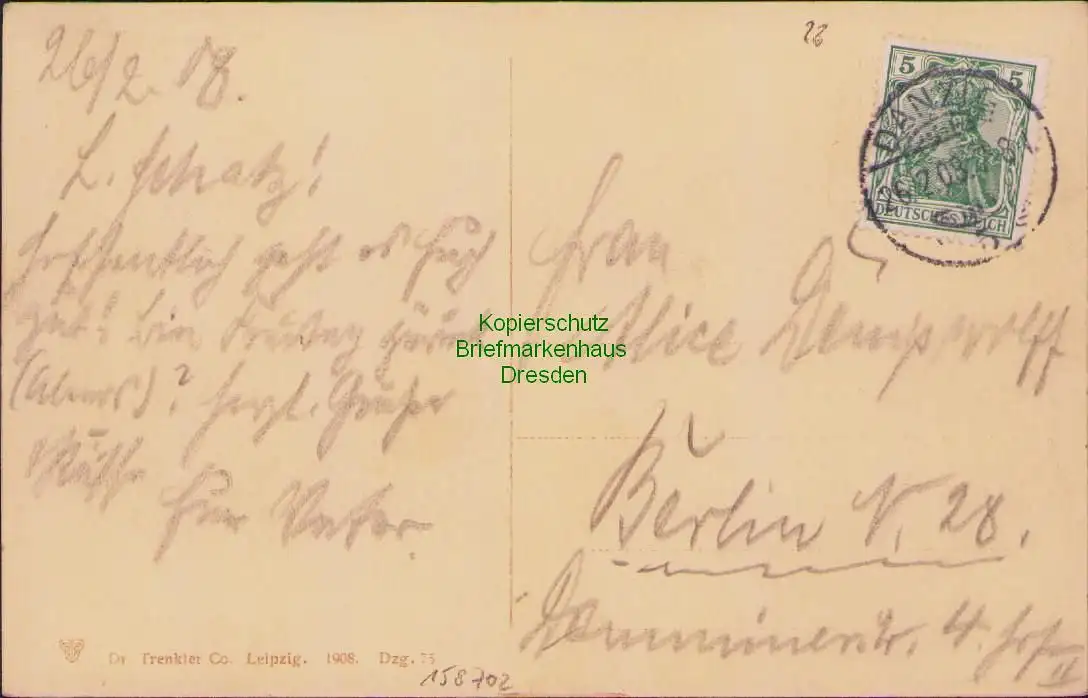 26/2. 08.
L. Schatz!
Hoffentlich geht es Euch
gut! Bin Freitag zurück
(Abends)? Herzl. Grüße
Küsse
Euer Vater.
22
5 5
DANZIG
26.2.08. 8-
DEUTSCHES REICH
Frau
Alice
Berlin N. 28.
4. Hof
II
Kopierschutz
Briefmarkenhaus
Dresden
Dr Trenkler Co. Leipzig. 1908. Dzg. 75
158702